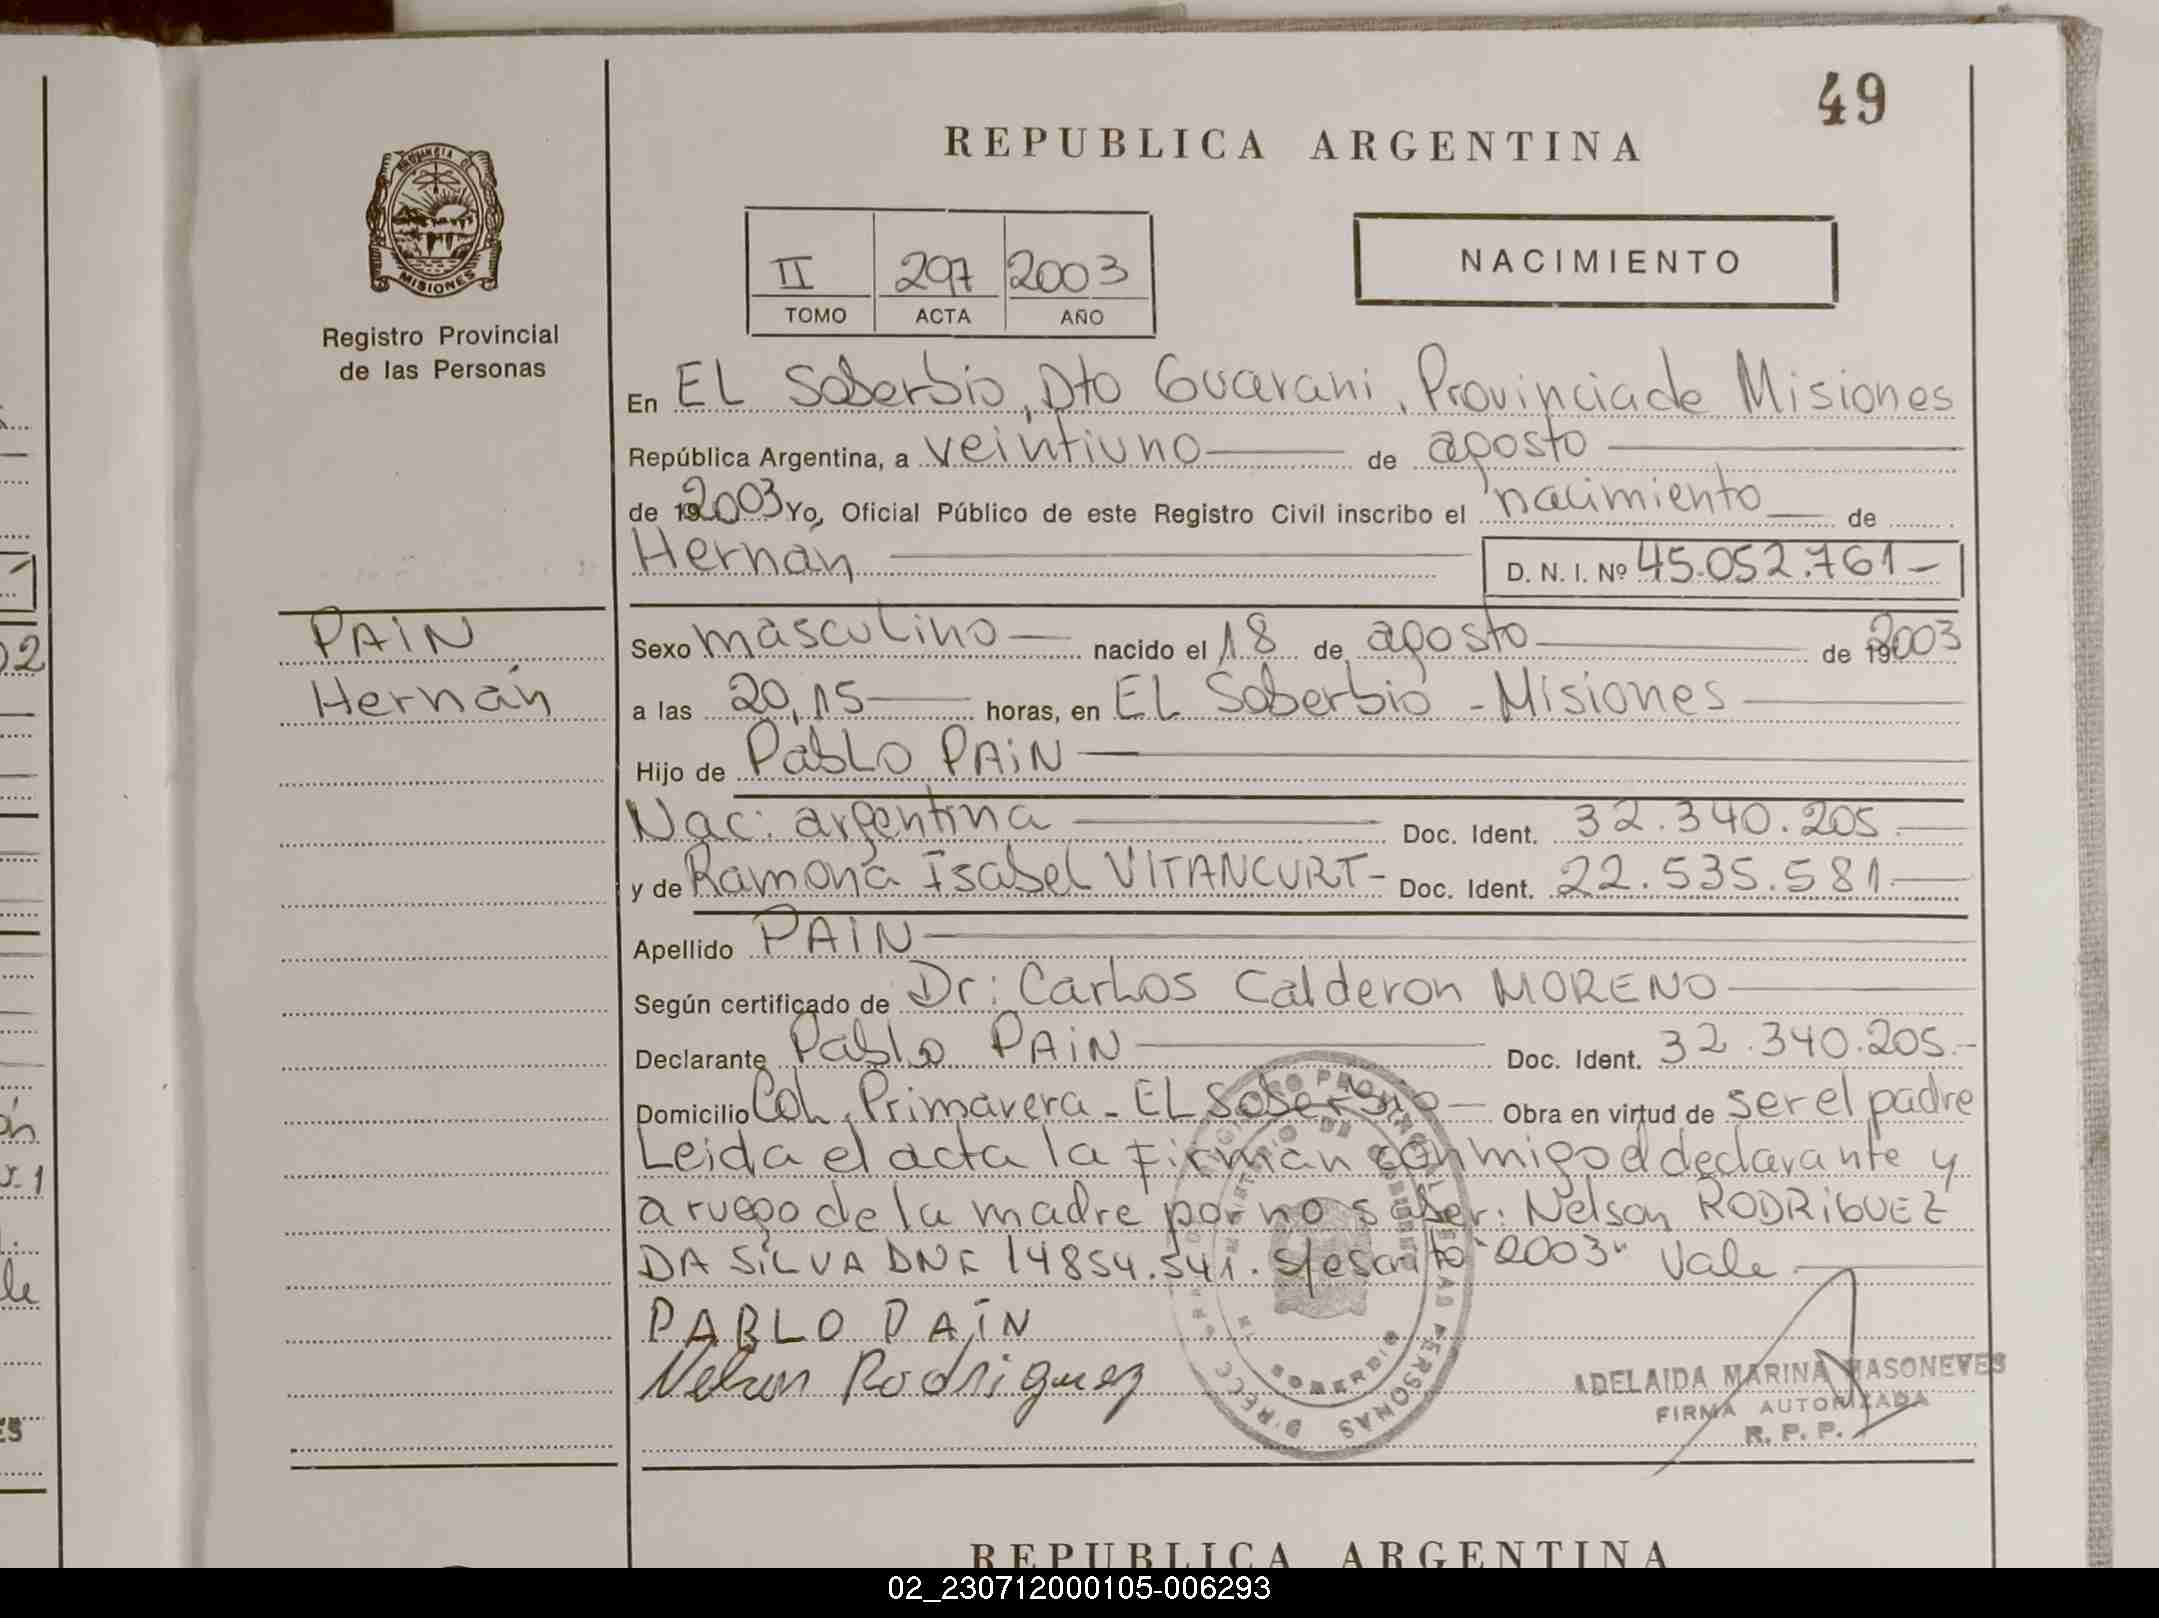 49
REPUBLICA ARGENTINA
PROVINCIA DE
MISIONES
Registro Provincial
de las Personas
II 297 2003
TOMO ACTA AÑO
NACIMIENTO
En EL Soberbio, Dto Guarani, Provincia de Misiones
República Argentina, a veintiuno de agosto
de 192003 Yo, Oficial Público de este Registro Civil inscribo el nacimiento de
Hernán D. N. I. Nº 45.052.761-
PAIN
Hernán
Sexo masculino nacido el 18 de agosto de 192003
a las 20,15 horas, en EL Soberbio - Misiones
Hijo de Pablo PAiN
Nac: argentina Doc. Ident. 32.340.205.
y de Ramona Isabel VITANCURT- Doc. Ident. 22.535.581.
Apellido PAiN
Según certificado de Dr: Carlos Calderon MORENO
Declarante Pablo PAiN Doc. Ident. 32.340.205.-
Domicilio Col. Primavera - EL Soberbio Obra en virtud de ser el padre
Leida el acta la firman conmigo el declarante y
a ruego de la madre por no saber: Nelson RODRIGUEZ
DA SILVA DNI 14854.541. s/escrito "2003" Vale
PABLO PAIN
Nelson Rodriguez
ADELAIDA MARINA MASONEVES
FIRMA AUTORIZADA
R. P. P.
REPUBLICA ARGENTINA
02_230712000105-006293